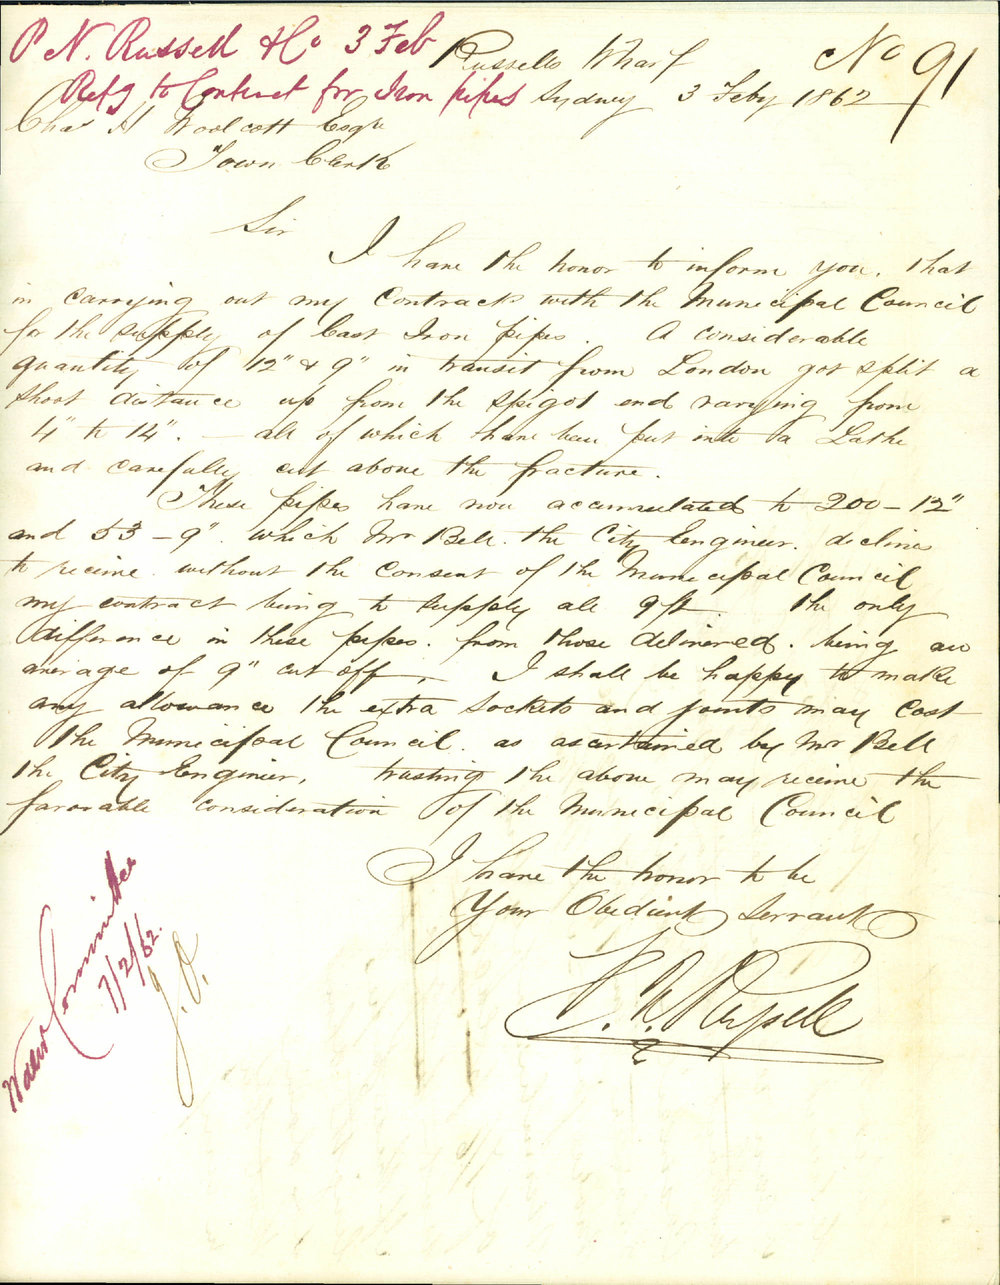 P N. Russell & Co 3 Feb
Refg to Contract for Iron pipes
No 91
Russells Wharf
Sydney 3 Feby 1862
Chas H Woolcott Esqre
Town Clerk
Sir
I have the honor to inform you. that
in carrying out my Contracts with the Municipal Council
for the supply of Cast Iron pipes. A considerable
quantity of 12" & 9" in transit from London got split a
short distance up from the spigot end varying from
4" to 14". — all of which I have been put into a Lathe
and carefully cut above the fracture.
These pipes have now accumulated to 200 – 12"
and 53 – 9". which Mr Bell. the City Engineer. declines
to receive. without the Consent of the Municipal Council
my contract being to supply all 9ft the only
difference in these pipes. from those delivered. being an
average of 9" cut off. I shall be happy to make
any allowance the extra Sockets and joints may Cost
the Municipal Council. as ascertained by Mr Bell
the City Engineer, trusting the above may receive the
favorable consideration of the Municipal Council
I have the honor to be
Your Obedient Servant
P. N. Russell
Water Committee
7/2/62.
J. O.